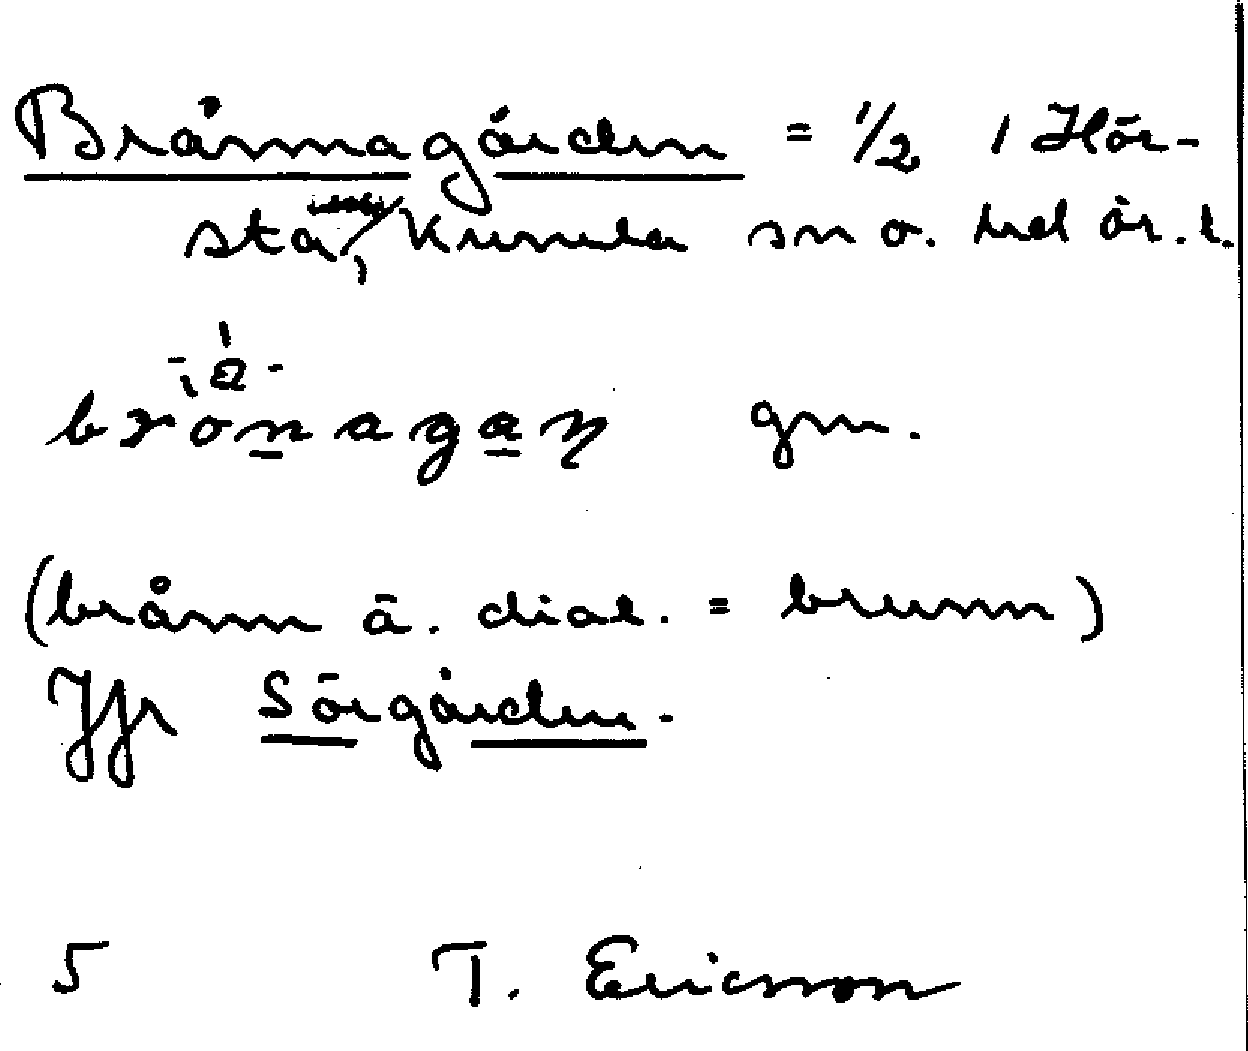 Brånnagården = 1/2 1 Hör-
sta, Kumla sn o. hd ör. l.
brònagaṇ gm.
-,è-
(brånn ä. dial. = brunn)
Jfr Sörgården.
5 T. Ericsson